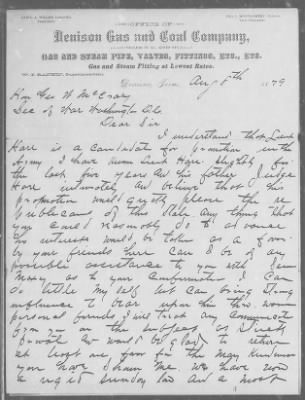 OFFICE OF
Denison Gas and Coal Company,
GAS AND STEAM PIPE, VALVES, FITTINGS, ETC., ETC.
Gas and Steam Fitting at Lowest Rates.
Aug 8th 1879
Hon Geo W McCrary
Sec of War Washington DC
Dear Sir
I understand that Lieut
Hare is a candidate for promotion in the
Army I have known Lieut Hare slightly for
the last few years and his father Judge
Hare intimately and believe that his
promotion would greatly please the re
publicans of this State Any thing that
you could reasonably do to advance
his interests would be taken as a favor
by your friends here Can I be of any
possible assistance to you with
as to your Confirmation I can
do little my self but can bring strong
influence to bear upon
personal friends I will treat any Communication
from you on the subject as
and would be glad to return
at least one favor for the many kindnesses
you have shown me We have now
a and a most